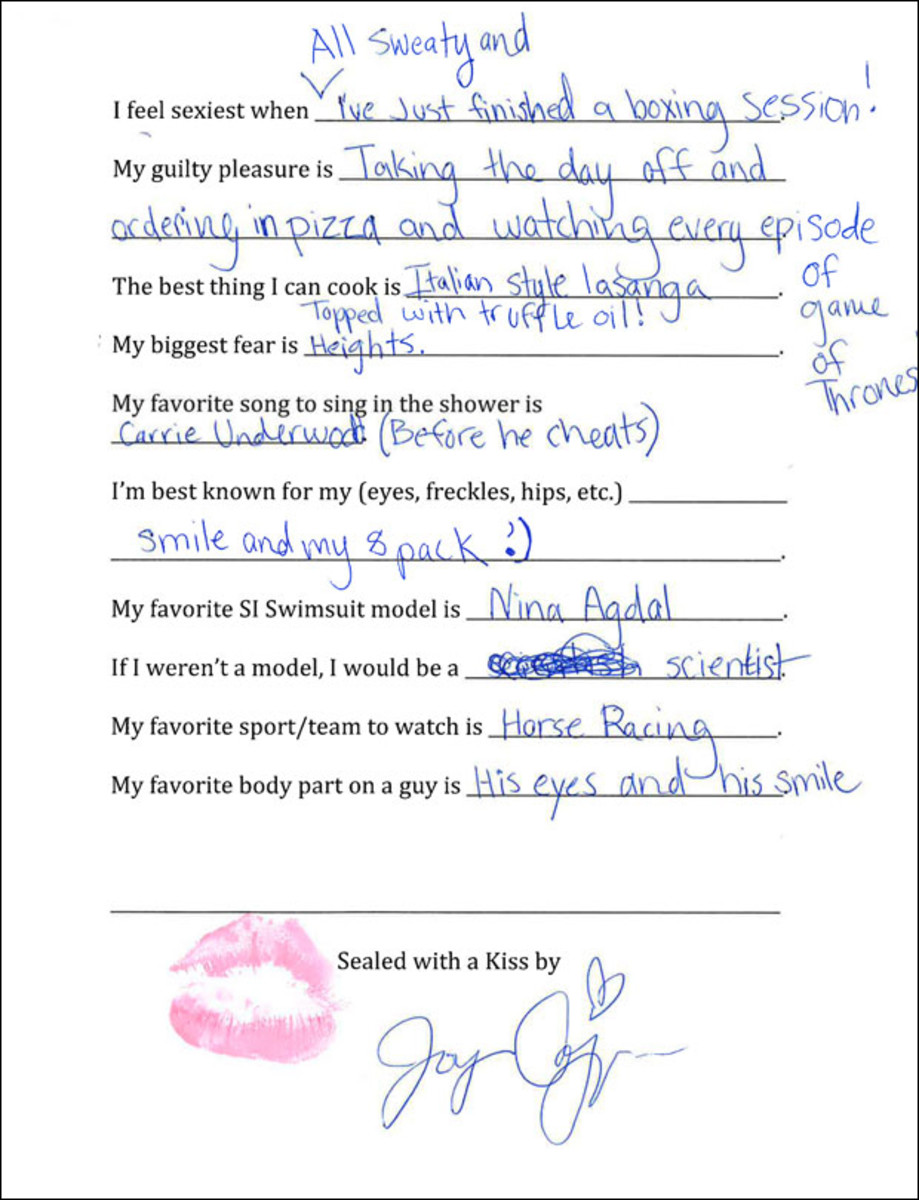 All sweaty and
I feel sexiest when I've Just finished a boxing session!
My guilty pleasure is Taking the day off and
ordering in pizza and watching every episode
of
game
of
Thrones
The best thing I can cook is Italian style lasanga.
Topped with truffle oil!
My biggest fear is Heights.
My favorite song to sing in the shower is
Carrie Underwood (Before he cheats)
I'm best known for my (eyes, freckles, hips, etc.)
smile and my 8 pack :).
My favorite SI Swimsuit model is Nina Agdal.
If I weren't a model, I would be a scientist.
My favorite sport/team to watch is Horse Racing.
My favorite body part on a guy is His eyes and his smile
Sealed with a Kiss by